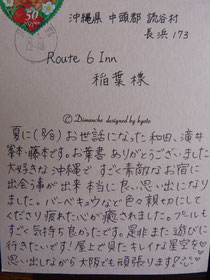 50
NIPPON
沖縄県 中頭郡 読谷村
長浜 173
Route 6 Inn
稲葉 様
Dimanche designed by kyoto
夏に(8/8)お世話になった和田、滝井
峯本・藤本です。お葉書 ありがとうございました
大好きな沖縄で すごく素敵なお宿に
出会う事が出来 本当に良い思い出になり
ました。バーベキュウなど色々親切にして
くださり疲れた心が癒されました。プールも
すごく気持ち良かったです。是非また遊びに
行きたいです!屋上で見たキレイな星空を
思い出しながら大阪でも頑張ります!